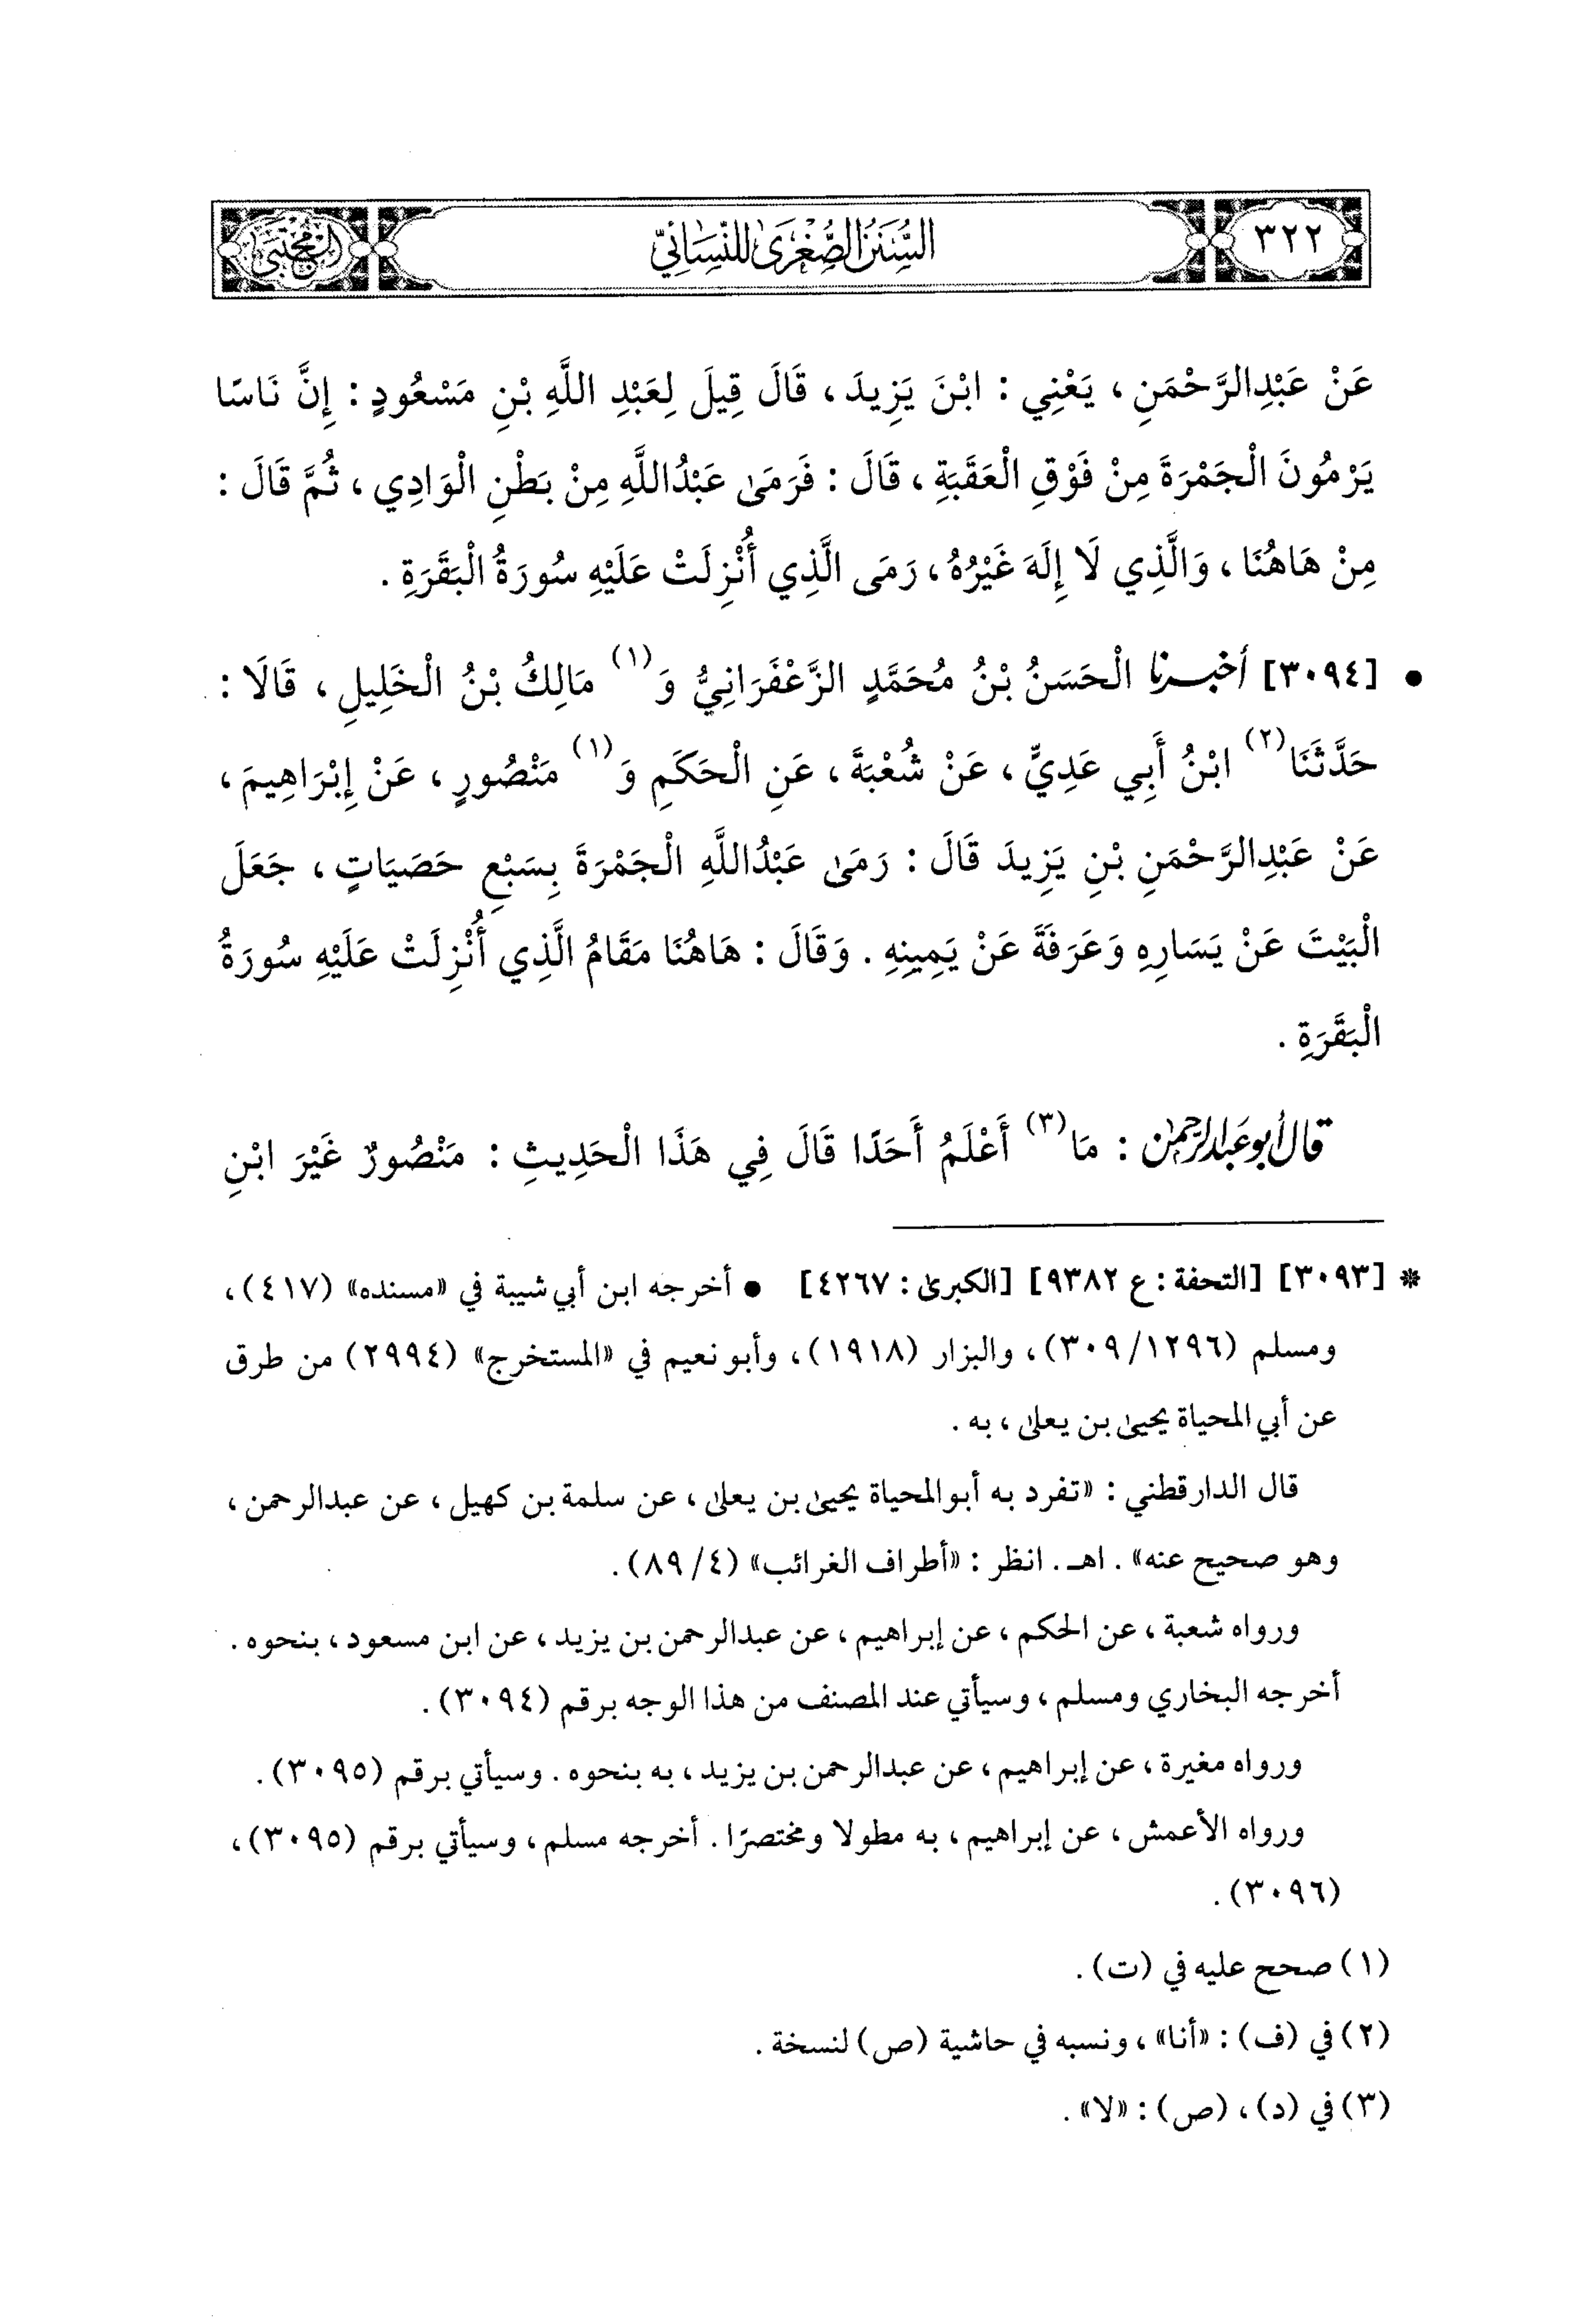 ٣٢٢
السُّنَنُ الصُّغْرَىٰ لِلنَّسَائِيِّ
المجتبى
عَنْ عَبْدِالرَّحْمَنِ ، يَعْنِي : ابْنَ يَزِيدَ ، قَالَ قِيلَ لِعَبْدِ اللَّهِ بْنِ مَسْعُودٍ : إِنَّ نَاسًا
يَرْمُونَ الْجَمْرَةَ مِنْ فَوْقِ الْعَقَبَةِ ، قَالَ : فَرَمَىٰ عَبْدُاللَّهِ مِنْ بَطْنِ الْوَادِي ، ثُمَّ قَالَ :
مِنْ هَاهُنَا ، وَالَّذِي لَا إِلَهَ غَيْرُهُ ، رَمَى الَّذِي أُنْزِلَتْ عَلَيْهِ سُورَةُ الْبَقَرَةِ .
● [٣٠٩٤] أخبرنا الْحَسَنُ بْنُ مُحَمَّدٍ الزَّعْفَرَانِيُّ وَ(١) مَالِكُ بْنُ الْخَلِيلِ ، قَالَا :
حَدَّثَنَا(٢) ابْنُ أَبِي عَدِيٍّ ، عَنْ شُعْبَةَ ، عَنِ الْحَكَمِ وَ(١) مَنْصُورٍ ، عَنْ إِبْرَاهِيمَ ،
عَنْ عَبْدِالرَّحْمَنِ بْنِ يَزِيدَ قَالَ : رَمَىٰ عَبْدُاللَّهِ الْجَمْرَةَ بِسَبْعِ حَصَيَاتٍ ، جَعَلَ
الْبَيْتَ عَنْ يَسَارِهِ وَعَرَفَةَ عَنْ يَمِينِهِ . وَقَالَ : هَاهُنَا مَقَامُ الَّذِي أُنْزِلَتْ عَلَيْهِ سُورَةُ
الْبَقَرَةِ .
قال أبو عبدالرحمن : مَا(٣) أَعْلَمُ أَحَدًا قَالَ فِي هَذَا الْحَدِيثِ : مَنْصُورٌ غَيْرَ ابْنِ
* [٣٠٩٣] [التحفة : ع ٩٣٨٢] [الكبرىٰ : ٤٢٦٧] ● أخرجه ابن أبي شيبة في «مسنده» (٤١٧) ،
ومسلم (١٢٩٦/ ٣٠٩) ، والبزار (١٩١٨) ، وأبو نعيم في «المستخرج» (٢٩٩٤) من طرق
عن أبي المحياة يحيىٰ بن يعلىٰ ، به .
قال الدارقطني : «تفرد به أبو المحياة يحيىٰ بن يعلىٰ ، عن سلمة بن كهيل ، عن عبدالرحمن ،
وهو صحيح عنه» . اهـ . انظر : «أطراف الغرائب» (٤/ ٨٩) .
ورواه شعبة ، عن الحكم ، عن إبراهيم ، عن عبدالرحمن بن يزيد ، عن ابن مسعود ، بنحوه .
أخرجه البخاري ومسلم ، وسيأتي عند المصنف من هذا الوجه برقم (٣٠٩٤) .
ورواه مغيرة ، عن إبراهيم ، عن عبدالرحمن بن يزيد ، به بنحوه . وسيأتي برقم (٣٠٩٥) .
ورواه الأعمش ، عن إبراهيم ، به مطولا ومختصرًا . أخرجه مسلم ، وسيأتي برقم (٣٠٩٥) ،
(٣٠٩٦) .
(١) صحح عليه في (ت) .
(٢) في (ف) : «أنا» ، ونسبه في حاشية (ص) لنسخة .
(٣) في (د) ، (ص) : «لا» .